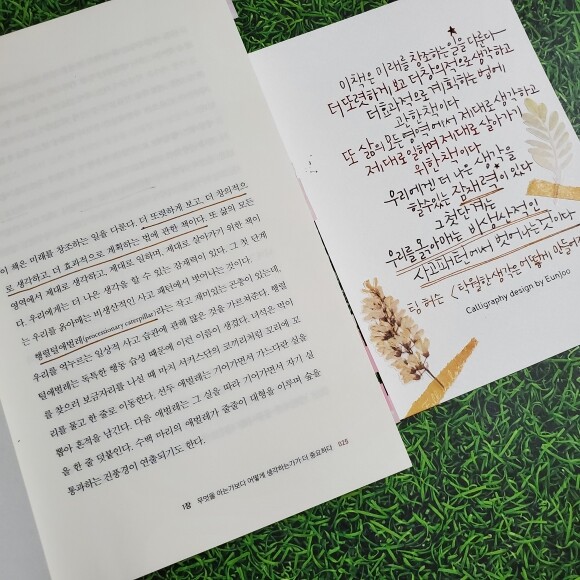 이 책은 미래를 창조하는 일을 다룬다. 더 또렷하게 보고, 더 창의적으
로 생각하고, 더 효과적으로 계획하는 법에 관한 책이다. 또 삶의 모든
영역에서 제대로 생각하고, 제대로 일하며, 제대로 살아가기 위한 책이
다. 우리에게는 더 나은 생각을 할 수 있는 잠재력이 있다. 그 첫 단계
는 우리를 옭아매는 비생산적인 사고 패턴에서 벗어나는 것이다.
행렬털애벌레(processionary caterpillar)라는 작고 재미있는 곤충이 있는데,
우리를 억누르는 일상적 사고 습관에 관해 많은 것을 가르쳐준다. 행렬
털애벌레는 독특한 행동 습성 때문에 이런 이름이 생겼다. 녀석은 먹이
를 찾으러 보금자리를 나설 때 마치 서커스단의 코끼리처럼 꼬리에 꼬
리를 물고 한 줄로 이동한다. 선두 애벌레는 기어가면서 가느다란 실을
뽑아 흔적을 남긴다. 다음 애벌레는 그 실을 따라 기어가면서 자기 실
을 한 줄 덧붙인다. 수백 마리의 애벌레가 줄줄이 대형을 이루며 숲을
통과하는 진풍경이 연출되기도 한다.
1장 무엇을 아는가보다 어떻게 생각하는가가 더 중요하다 029
이 책은 미래를 창조하는 일을 다룬다
더 또렷하게 보고 더 창의적으로 생각하고
더 효과적으로 계획하는 법에
관한 책이다
또 삶의 모든 영역에서 제대로 생각하고
제대로 일하며 제대로 살아가기
위한 책이다
우리에겐 더 나은 생각을
할 수 있는 잠재력이 있다
그 첫 단계는
우리를 옭아매는 비생산적인
사고패턴에서 벗어나는 것이다
팀 허슨 <탁월한 생각은 어떻게 만들어
Calligraphy design by EunJoo